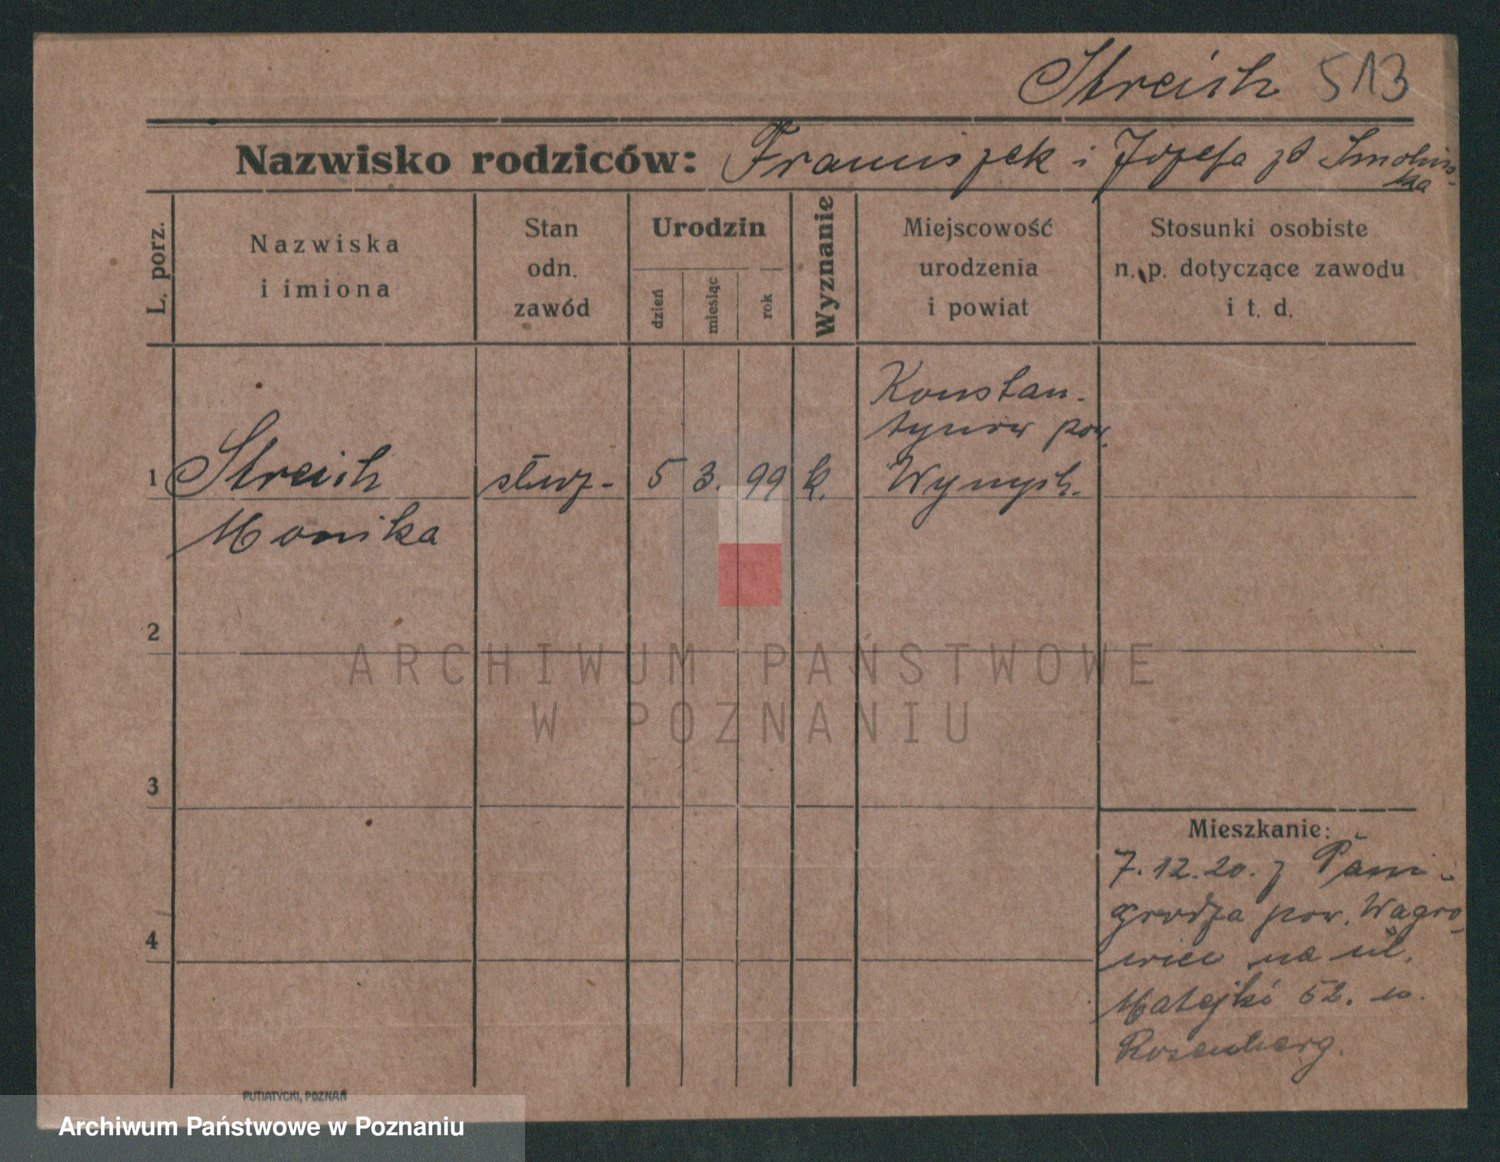 Streich 513
Nazwisko rodziców: Franciszek i Józefa zd Smolińs-
ka
L. porz.
Nazwiska
i imiona
Stan
odn.
zawód
Urodzin
dzień
miesiąc
rok
Wyznanie
Miejscowość
urodzenia
i powiat
Stosunki osobiste
n. p. dotyczące zawodu
i t. d.
Konstan-
tynów pow.
1 Streich służ- 5 3. 99 k. Wyrzysk.
Monika
2
ARCHIWUM PAŃSTWOWE
W POZNANIU
3
Mieszkanie:
7.12.20. z Pani-
grodza pow. Wągro-
wiec na ul.
Matejki 52. u.
Rosenberg.
4
PUTIATYCKI, POZNAŃ
Archiwum Państwowe w Poznaniu